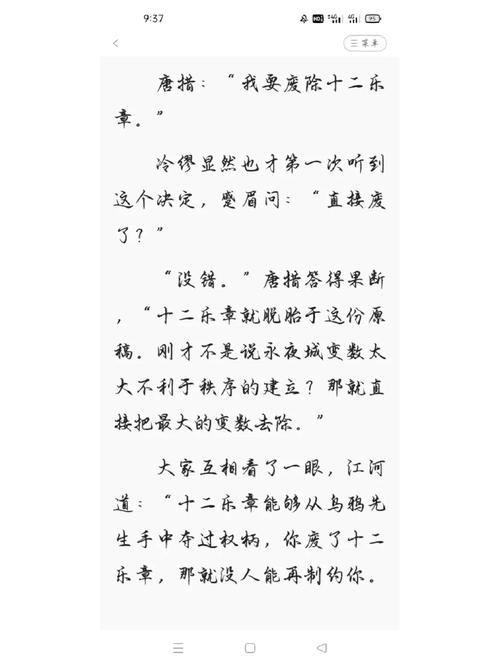 9:37
HD 4G 4G 95
菜单
唐措:“我要废除十二乐
章。”
冷缪显然也才第一次听到
这个决定,蹙眉问:“直接废
了?”
“没错。”唐措答得果断
,“十二乐章就脱胎于这份原
稿。刚才不是说永夜城变数太
大不利于秩序的建立?那就直
接把最大的变数去除。”
大家互相看了一眼,江河
道:“十二乐章能够从乌鸦先
生手中夺过权柄,你废了十二
乐章,那就没人能再制约你。